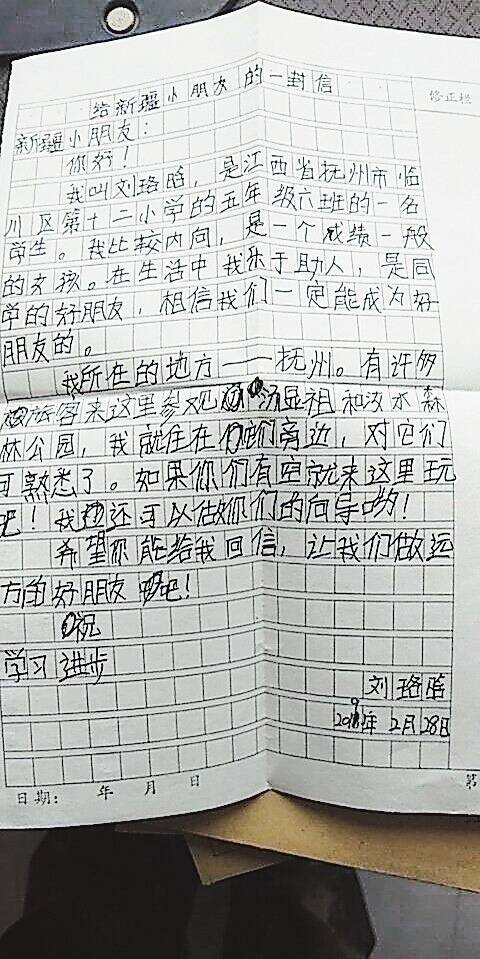 给新疆小朋友的一封信
修正栏
新疆小朋友：
你好！
我叫刘珞晗，是江西省抚州市临
川区第十二小学的五年级六班的一名
学生。我比较内向，是一个成绩一般
的女孩。在生活中我乐于助人，是同
学的好朋友，相信我们一定能成为好
朋友的。
我所在的地方——抚州。有许多
旅客来这里参观汤显祖和汝水森
林公园，我就住在它们旁边，对它们
可熟悉了。如果你们有空就来这里玩
吧！我还可以做你们的向导哟！
希望你能给我回信，让我们做远
方的好朋友吧！
祝
学习进步
刘珞晗
2019年2月28日
日期： 年 月 日
第